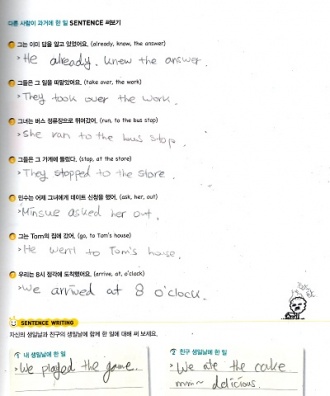 다른 사람이 과거에 한 일 SENTENCE 써보기
그는 이미 답을 알고 있었어요. (already, know, the answer)
He already. knew the answer.
그들은 그 일을 떠맡았어요. (take over, the work)
They took over the work.
그녀는 버스 정류장으로 뛰어갔어. (run, to the bus stop)
She ran to the bus stop.
그들은 그 가게에 들렀다. (stop, at the store)
They stopped to the store.
민수는 어제 그녀에게 데이트 신청을 했어. (ask, her, out)
Minsue asked her out.
그는 Tom의 집에 갔어. (go, to Tom's house)
He went to Tom's house.
우리는 8시 정각에 도착했어요. (arrive, at, o'clock)
We arrived at 8 o'clock.
SENTENCE WRITING
자신의 생일날과 친구의 생일날에 함께 한 일에 대해 써 보세요.
내 생일날에 한 일
We played the game.
친구 생일날에 한 일
We ate the cake
mmm~ delicious.